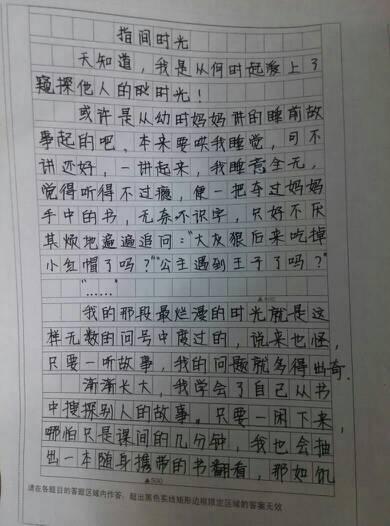 指间时光
天知道，我是从何时起爱上了
窥探他人的时光！
或许是从幼时妈妈讲的睡前故
事起的吧。本来要哄我睡觉，可不
讲还好，一讲起来，我睡意全无，
觉得听得不过瘾，便一把夺过妈妈
手中的书，无奈不识字，只好不厌
其烦地遍遍追问：“大灰狼后来吃掉
小红帽了吗？”“公主遇到王子了吗？”
“……”
▲400
我的那段最烂漫的时光就是这
样无数的问号中度过的，说来也怪，
只要一听故事，我的问题就多得出奇.
渐渐长大，我学会了自己从书
中搜探别人的故事。只要一闲下来，
哪怕只是课间的几分钟，我也会抽
出一本随身携带的书翻看，那如饥
▲500
请在各题目的答题区域内作答，超出黑色实线矩形边框限定区域的答案无效